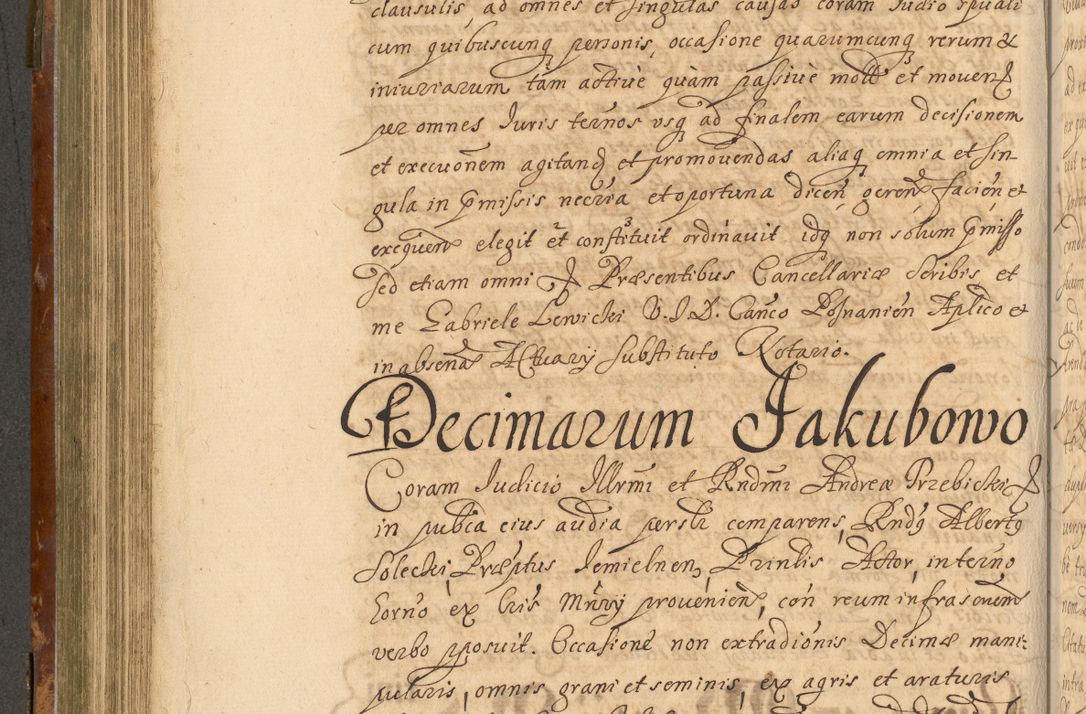 clausulis, ad omnes et singulas causas coram Iudio spuali
cum quibuscunq personis, occasione quarumcunq rerum &
iniuriarum tam active quam passive mott et movend
per omnes Iuris ternos usq ad finalem earum decisionem
et execuonem agitand et promovendas aliaq omnia et sin
gula in pmissis necria et oportuna dicen geren facien et
exequen elegit et constituit ordinavit idq non solum pmisso
sed etiam omni Præsentibus Cancellariæ Scribis et
me Gabriele Lewicki V. I. D. Canco Posnanien Aplico et
in absena Actuarij substituto Notario.
Decimarum Jakubowo
Coram Iudicio Illrmi et Rndmi Andreæ Trzebicki
in pubca eius audia persltr comparens, Rndq Albertq
Solecki Præptus Iemielnen, Prinlis, Actor, interno
Eorno, ex Cris Mnrij provenien, con reum infrascrien
verbo pposuit. Occasione non extradionis Decimæ mani:
pularis, omnis grani et seminis, ex agris et araturis